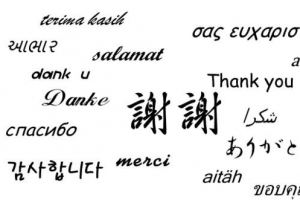 terima kasih
σας ευχαρισ
આભાર
salamat
a
dank u
Thank you
Danke
謝謝
شكرا
спасибо
ありがと
감사합니다
merci
aitäh
ขอบคุ